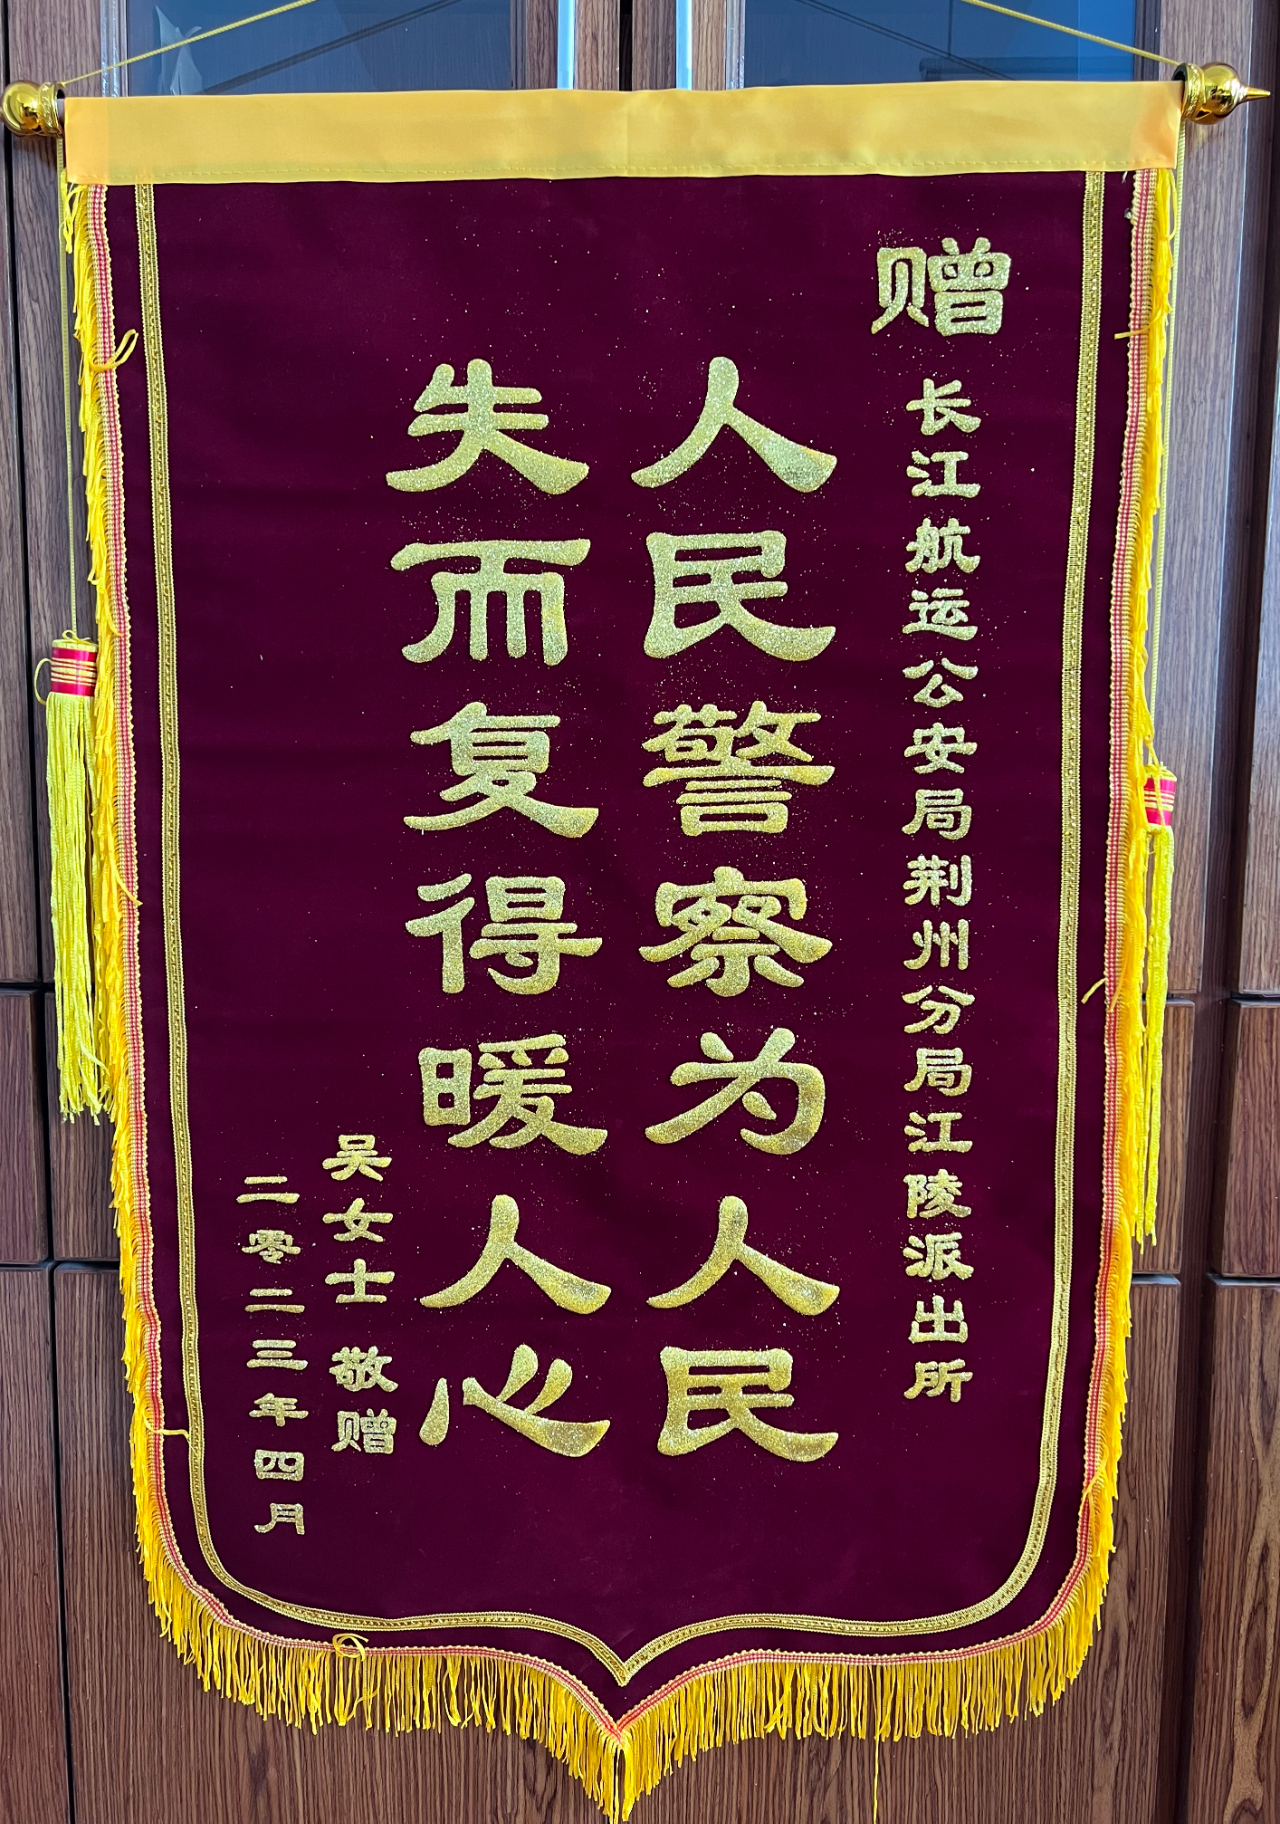 赠 长江航运公安局荆州分局江陵派出所
人民警察为人民
失而复得暖人心
吴女士 敬赠
二零二三年四月